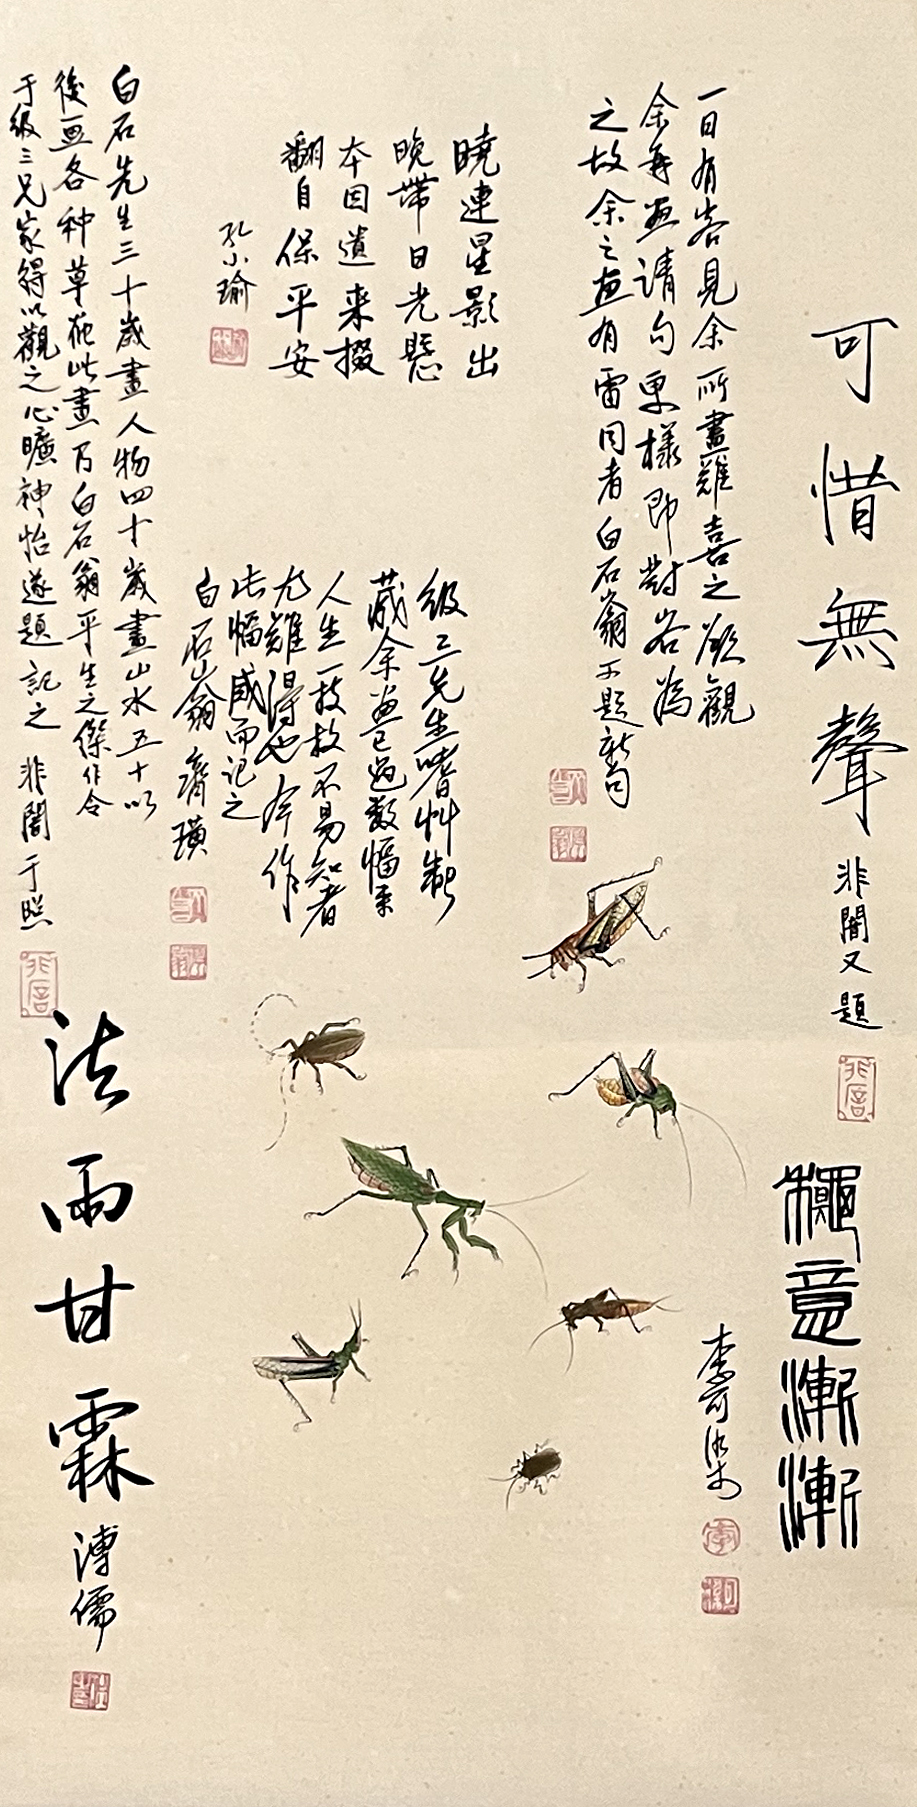 可惜無聲
非闇又題
穐意漸漸
李可染
一日有客見余所畫雖喜之欲觀
余每畫請勾更樣即對客為
之故余之畫有雷同者白石翁不題新句
曉連星影出
晚帶日光懸
本因遺來掇
翻自保平安
孔小瑜
級三先生嗜艸蟲
藏余畫已過數幅矣
人生一技故不易知者
尤難得也今作
此幅感而記之
白石山翁齊璜
白石先生三十歲畫人物四十歲畫山水五十以
後画各种草花此畫乃白石翁平生之傑作今
于級三兄家得以觀之心曠神怡遂題記之非闇于照
法雨甘霖
溥儒